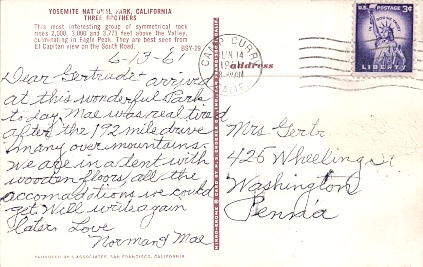 YOSEMITE NATIONAL PARK, CALIFORNIA
THREE BROTHERS
This most interesting group of symmetrical rock
rises 2,500, 3,000 and 3,773 feet above the Valley,
culminating in Eagle Peak. They are best seen from
El Capitan view on the South Road.
BSY-29
6-13-61
Dear Gertrude - arrived
at this wonderful Park
to day. Mae was real tired
after the 192 mile drive
many over mountains.
We are in a tent with
wooden floors, all the
accomodations we could
get. Will write again
later Love
Norman & Mae
PRODUCED BY ASSOCIATES, SAN FRANCISCO, CALIFORNIA
CAMP CURRY
JUN 14
CALIF.
address
U.S. POSTAGE 3¢
LIBERTY
Mrs Gertr
425 Wheeling
Washington
Penn'a